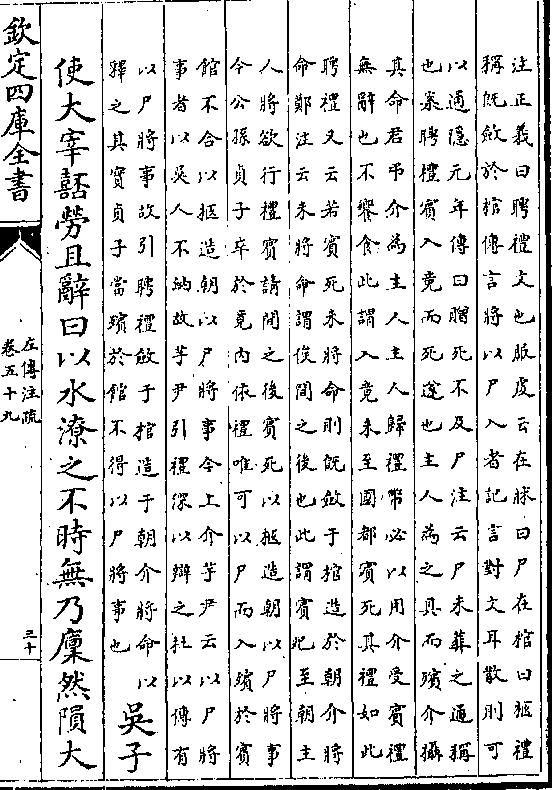 注正義曰聘禮文也服虔云在牀曰尸在棺曰柩禮
稱既斂於棺傳言將以尸入者記言對文耳散則可
以通隱元年傳曰贈死不及尸注云尸未葬之通稱
也案聘禮賓入竟而死遂也主人為之具而殯介攝
其命君弔介為主人主人歸禮幣必以用介受賓禮
無辭也不饗食此謂入竟未至國都賓死其禮如此
聘禮又云若賓死未將命則既斂于棺造於朝介將
命鄭注云未將命謂俟間之後也此謂賓已至朝主
人將欲行禮賓請間之後賓死以柩造朝以尸將事
今公孫貞子卒於竟內依禮唯可以尸而入殯於賓
館不合以柩造朝以尸將事今上介芋尹云以尸將
事者以吳人不納故芋尹引禮深以辯之杜以傳有
以尸將事故引聘禮斂于棺造于朝介將命以
釋之其實貞子當殯於館不得以尸將事也
吳子
使大宰嚭勞且辭曰以水潦之不時無乃廩然隕大
欽定四庫全書
左傳注疏
卷五十九
三十